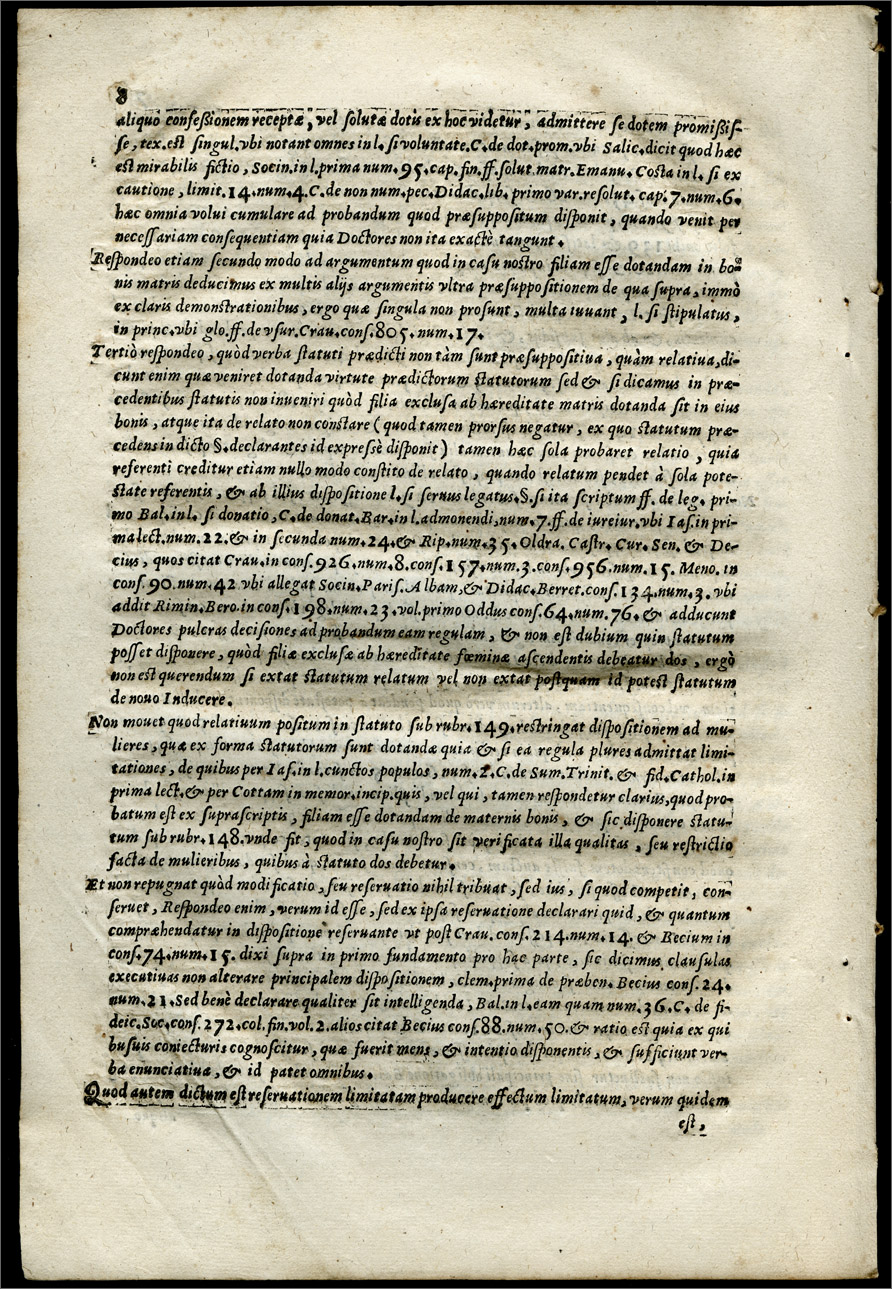 8
aliquo confeßionem receptæ, vel solutæ dotis ex hoc videtur, admittere se dotem promißis-
se, tex.est singul.vbi notant omnes in l. si voluntate.C.de dot.prom.vbi Salic.dicit quod hæc
est mirabilis fictio, Socin.in l.prima num.95.cap.fin.ff.solut.matr.Emanu. Costa in l. si ex
cautione, limit.14.num.4.C.de non num.pec.Didac.lib. primo var.resolut. cap.7.num.6.
hæc omnia volui cumulare ad probandum quod præsuppositum disponit, quando venit per
necessariam consequentiam quia Doctores non ita exactè tangunt.
Respondeo etiam secundo modo ad argumentum quod in casu nostro filiam esse dotandam in bo-
nis matris deducimus ex multis alijs argumentis vltra præsuppositionem de qua supra, immò
ex claris demonstrationibus, ergo quæ singula non prosunt, multa iuuant, l. si stipulatus,
in princ.vbi glo.ff.de vsur.Crau.cons.805.num.17.
Tertiò respondeo, quòd verba statuti prædicti non tàm sunt præsuppositiua, quàm relatiua,di-
cunt enim quæ veniret dotanda virtute prædictorum statutorum sed & si dicamus in præ-
cedentibus statutis non inueniri quòd filia exclusa ab hæreditate matris dotanda sit in eius
bonis, atque ita de relato non constare (quod tamen prorsus negatur, ex quo statutum præ-
cedens in dicto §.declarantes id expressè disponit) tamen hæc sola probaret relatio, quia
referenti creditur etiam nullo modo constito de relato, quando relatum pendet à sola pote-
state referentis, & ab illius dispositione l.si seruus legatus.§.si ita scriptum ff. de leg. pri-
mo Bal.in l. si donatio, C.de donat.Bar.in l.admonendi,num.7.ff.de iureiur.vbi Ias.in pri-
ma lect.num.22.& in secunda num.24.& Rip.num.35. Oldra. Castr. Cur. Sen. & De-
cius, quos citat Crau.in cons.926.num.8.cons.157.num.3.cons.956.num.15. Meno. in
cons.90.num.42 vbi allegat Socin.Paris.Albam,& Didac.Berret.cons.134.num.3. vbi
addit Rimin.Bero.in cons.198.num.23.vol.primo Oddus cons.64.num.76.& adducunt
Doctores pulcras decisiones ad probandum eam regulam, & non est dubium quin statutum
posset disponere, quòd filiæ exclusæ ab hæreditate fœminæ ascendentis debeatur dos, ergò
non est querendum si extat statutum relatum vel non extat postquam id potest statutum
de nouo Inducere.
Non mouet quod relatiuum positum in statuto sub rubr.149.restringat dispositionem ad mu-
lieres, quæ ex forma statutorum sunt dotandæ quia & si ea regula plures admittat limi-
tationes, de quibus per Ias.in l.cunctos populos, num.2.C.de Sum.Trinit.& fid.Cathol.in
prima lect.& per Cottam in memor.incip.quis, vel qui, tamen respondetur clarius,quod pro-
batum est ex suprascriptis, filiam esse dotandam de maternis bonis, & sic disponere statu-
tum sub rubr.148.vnde fit, quod in casu nostro sit verificata illa qualitas, seu restrictio
facta de mulieribus, quibus à statuto dos debetur.
Et non repugnat quòd modificatio, seu reseruatio nihil tribuat, sed ius, si quod competit, con-
seruet, Respondeo enim, verum id esse, sed ex ipsa reseruatione declarari quid, & quantum
compræhendatur in dispositione reseruante vt post Crau.cons.214.num.14.& Becium in
cons.74.num.15. dixi supra in primo fundamento pro hac parte, sic dicimus clausulas
executiuas non alterare principalem dispositionem, clem.prima de præben. Becius cons.24.
num.21.Sed benè declarare qualiter sit intelligenda, Bal.in l.eam quam num.36.C. de fi-
deic.Soc.cons.272.col.fin.vol.2.alios citat Becius cons.88.num.50.& ratio est quia ex qui
busuis coniecturis cognoscitur, quæ fuerit mens, & intentio disponentis, & sufficiunt ver-
ba enunciatiua, & id patet omnibus.
Quod autem dictum est reseruationem limitatam producere effectum limitatum, verum quidem
est,